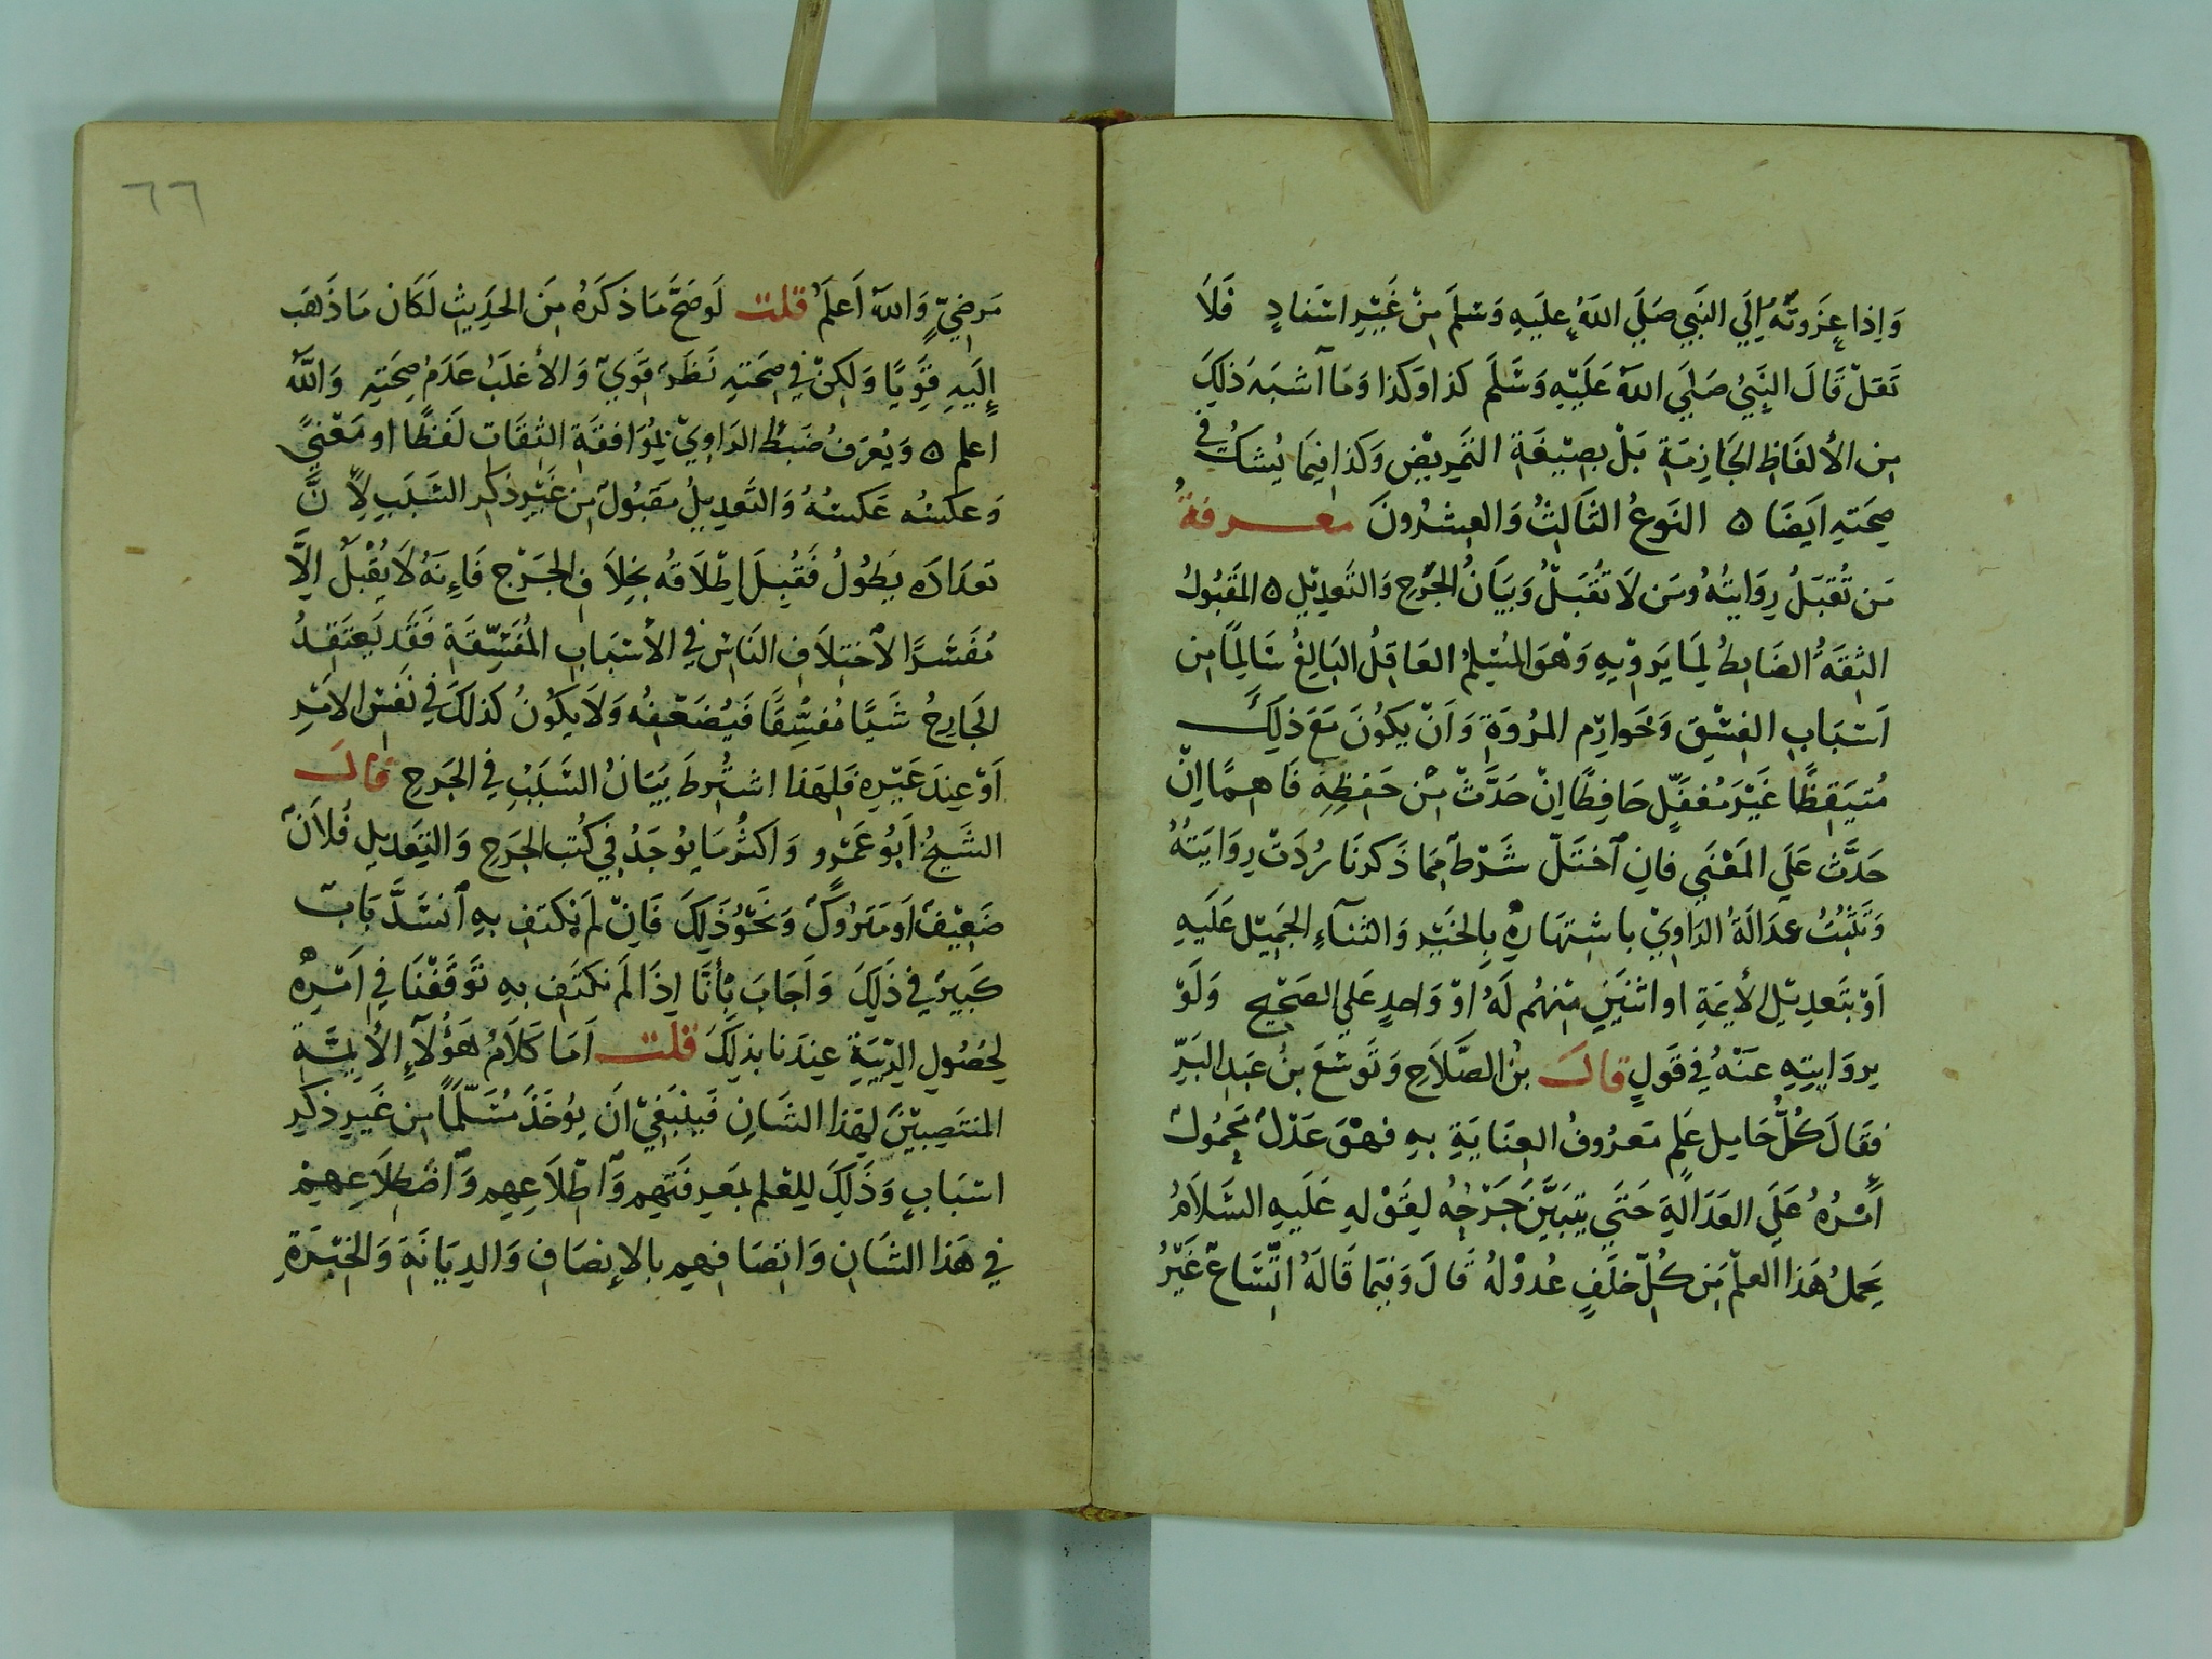 وَاِذا عِزَوتَهُ اِلَي النَبِي صَلَي اللهُ عَليَهِ وَسَلمَ مِنْ غَيْرِ اسْنَادٍ فَلَا
تَقلْ قَالَ النَبِيُ صَلَي اللهُ عَلَيْهِ وَسَّلَم كذا وَكذا وَمَا آشبَهَ ذلِكَ
مِن الألفَاظِ الجَازِمَةِ بَلْ بِصِيْغَةِ التَمرِيْضِ وَكذا فِيمَا يُشكُ فِي
صِحَتِهِ ايَضًا ٥ النَوعُ الثَالِثُ وَالعِشرُونَ معرفةُ
مَن تُقبَلُ رِوَايتُهُ وَمَن لَا تُقبَلُ وَبَيَانُ الجَرْحِ وَالتَعدِيْلِ ٥ المَقبُولُ
الثِقَةُ الضَابِطُ لِمَا يَروْيِهِ وَهْوَ المُسْلِمُ العَاقِلُ البَالِغُ سَالِمًا مِن
اَسْبَابِ الفِسْقِ وَخوَارِم المرُوَةِ وَاَنْ يَكوُنَ مَعَ ذلِكَ
مُتيَقِظًا غَيْرَ مُغفَلٍ حَافِظًا اِنْ حَدَّثَ مِنْ حَفِظِهِ فَاهِمًا اِنْ
حَدَّثَ عَلَي المَعْنَي فاِن ٱختَلّ شَرْطٌ مِمَا ذَكرنَا رُدَتْ رِوَايَتُهُ
وَتَثبُتُ عدَالَةُ الرَاوِيْ باشتِهَارِهِ بِالخيْرِ وَالثنآءِ الجَمِيْلِ عَلَيهِ
اَوْ بتَعدِيْلِ الأيمَةِ او اثنَيَنِ مِنْهُم لَهُ اوْ وَاحدٍ عَلي الصَحْيحِ وَلَوْ
بِروَايتِهِ عَنهُ فِي قَولٍ قالَ بنُ الصَّلَاحِ وَتَوسْعَ بنُ عَبدِ البَرِّ
فقَالَ كُلُّ حَامِلِ عَلِم مَعرُوفُ العِنَايَةِ بهِ فهْوَ عَدْلٌ مَحمُولٌ
اَمْرُهُ عَلَي العَدَالَةِ حَتَي يتبَيَّنَ جَرْحُهُ لِقَوْلهِ عَلَيهِ السَلاَمُ
يَحملُ هَذا العلْم مَن كُلِّ خلَفٍ عُدوْلُهُ قَالَ وَفيَما قَالَهُ اتّسَاعٌ غَيْرُ
٦٦
مَرضِيٍّ وَاللهُ اَعلَمُ قلت لَو صَحَّ مَا ذكَرَهُ مِنَ الحَدِيثِ لَكَان مَا ذَهَبَ
اِلَيهِ قَوِيًا وَلكِنْ فِي صِحَتهِ نَظَرٌ قوِيٌ وَالأغلَبُ عَدَمُ صِحَتِهِ وَاللهُ
اعلم ٥ وَيُعرَفُ ضَبطُ الرَاوِيْ بُمُوَافقَةِ الثِقَاتِ لَفظًا او مَعْنيً
وَعَكسُه عَكسُهُ وَالتَعدِيلُ مَقبُولٌ مِن غَيْرِ ذكْرِ السَبَبِ لِأنَّ
تعدَادَه يَطُولُ فَقُبِلَ اِطْلَاقُه بخِلَافِ الجَرْح فَاِنَهُ لَا يُقْبلُ الِاَّ
مُفَسَّرًا لاختِلاَفِ النَاسِ فِي الأسْبَابِ المُفسِّقَةِ فَقَد يَعتَقِدُ
الجَارِحُ شَيًا مُفسِّقًا فَيُضَعِفُه وَلَا يكوُنُ كَذلكَ فِي نَفسِ الامْرِ
اَوْ عِندَ غَيْرِهِ فَلِهَذا اشتُرِطَ بَيَانُ السَبَبِ فِي الجَرحِ قالَ
الشَيخُ اَبُو عَمْرٍو وَاكثرُ مَا يُوجَدُ فِي كُتبِ الجَرحِ وَالتَعدِيلِ فُلاَنٌ
ضَعِيْفٌ اَو مَترُوكٌ وَنَحْوُ ذَلِكَ فَانْ لم نَكتفِ بهِ ٱنسَدَّ بَابٌ
كَبِيرٌ فِي ذَلِكَ وَاَجَابَ بِأنَّا اِذَا لَم نكتَفِ بهِ تَوقَفْنَا فِي اَمْرِه
لِحصُولِ الرِيْبَةِ عِندَنا بذلِكَ قلت اَمَا كَلَامُ هَؤُلَآءِ الأيمَّةِ
المنتصِبِيْنَ لِهَذا الشَانِ فَينَبغِيْ انَ يوُخَذَ مُسَلَّمًا مِن غَيرِ ذكِرِ
اسْبَابٍ وَذَلِكَ لِلعْلمِ بمَعرِفَتِهِم وَٱطِلاَعِهِم وَٱضطِلاَعِهِمْ
فِي هَذا الشَانِ وَاتصَافِهِم بالإنصَافِ وَالدِيَانَةِ وَالخِبْرَةِ